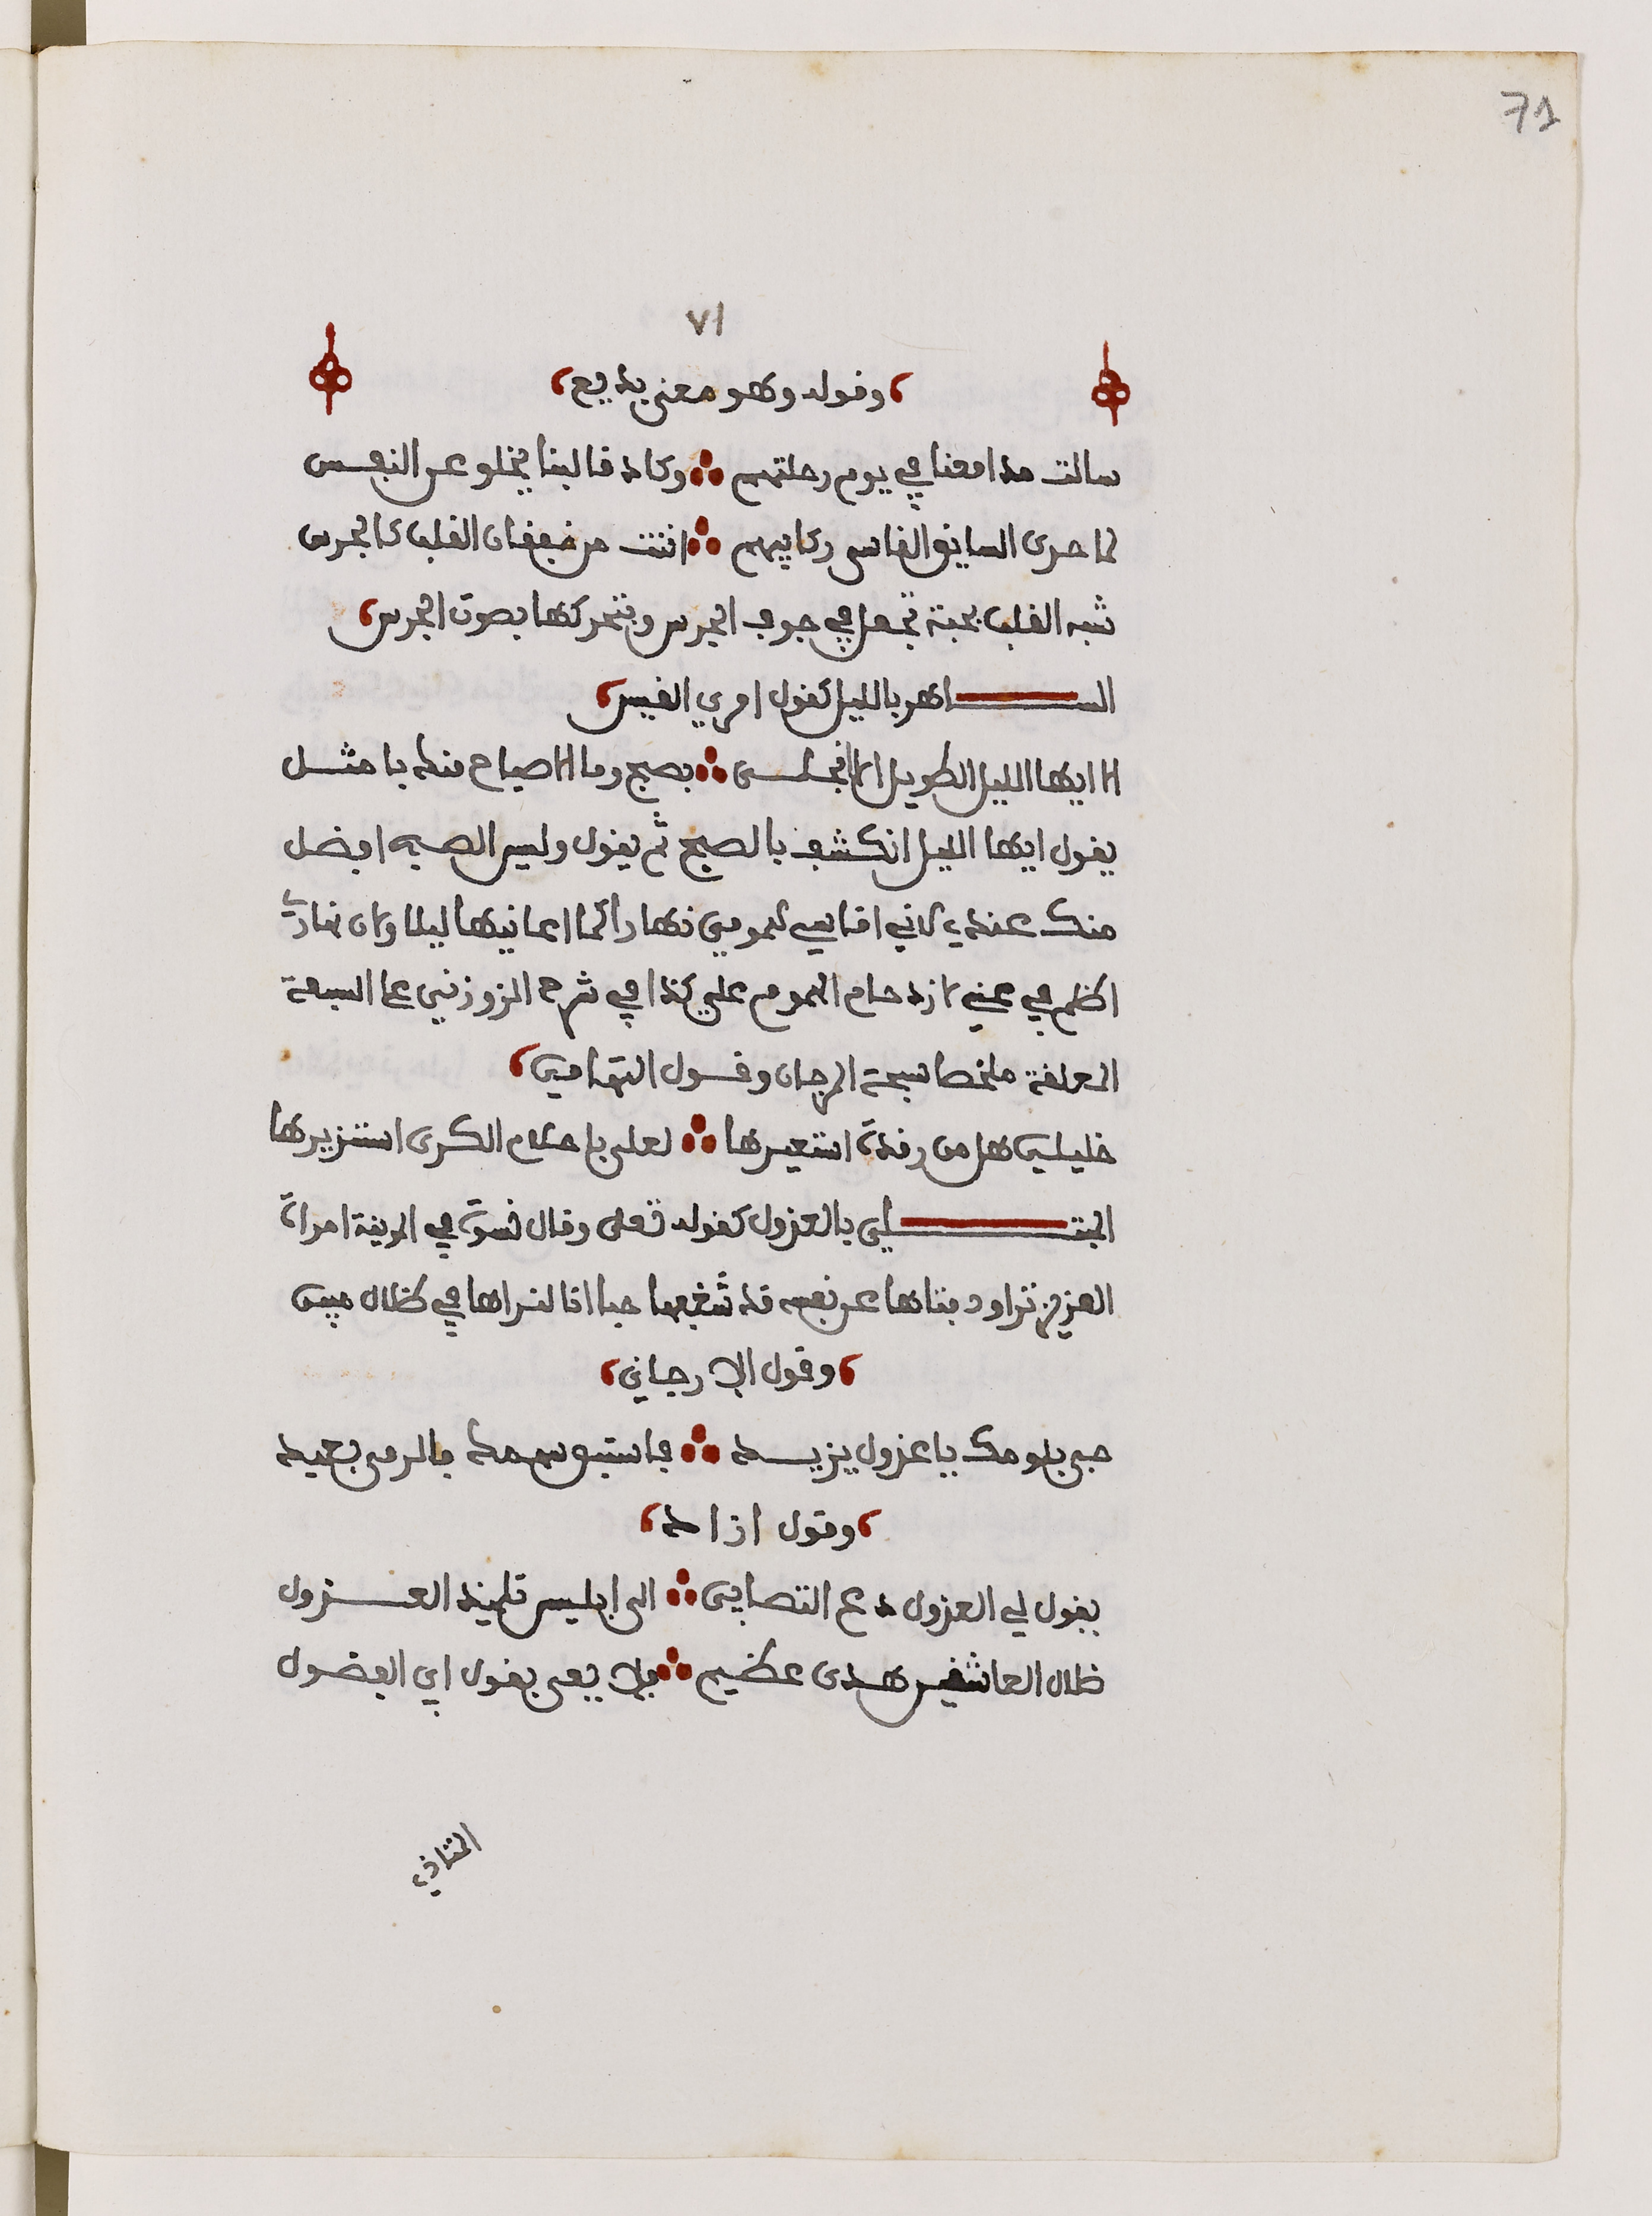 71
٧١
وقوله وهو معنى بديع
سالت مدامعنا في يوم رحلتهم ∴ وكاد قالبنا يخلو عن النفس
لما حدى السايق القاسي ركايبهم ∴ انت من خفقان القلب كالجرس
شبه القلب بحبة تجعل في جوف الجرس وبتحركها يصوت الجرس
الساهر بالليل كقول امري القيس
الا ايها الليل الطويل الا انجلي ∴ بصبح وما الاصباح منك بامثل
يقول ايها الليل انكشف بالصبح ثم يقول وليس الصبح افضل
منك عندي لاني اقاسي همومي نهارا كما اعانيها ليلا ولان نهاري
اظلم في عيني لازدحام الهموم علي كذا في شرح الزوزني على السبعة
المعلقة ملخصا سبحة المرجان وقول التهامي
خليلي هل من رقدة استعيرها ∴ لعلي باحلام الكرى استزيرها
المبتلى بالعزول كقوله تعلى وقال نسوة في المدينة امراة
العزيز تراود فتاها عن نفسه قد شغفها حبا انا لنراها في ظلال مبين
وقول الارجاني
حبي بلومك يا عزول يزيد ∴ فاستبق سهمك فالرمى بعيد
وقول ازاد
يقول لي العزول دع التصابي ∴ الى ابليس تلميذ العزول
ظلال العاشقين هدى عظيم ∴ فلا يعبى بقول ابي الفضول